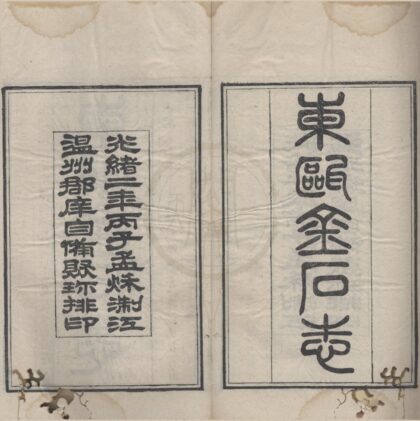 東甌金石志
光緒二年丙子孟秋浙江
温州郡庠自備聚珍排印